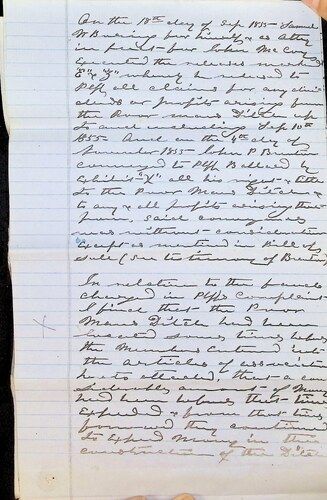 On the 18th day of Sep 1855 Samuel
W Buring for himself & as Atty
in fact for John McCoy
executed the releases marked
"E" & "Z" whereby he released to
Plff all claims for any divi
dends or profits arising from
the Poor Mans Ditch up
to and including Sep 10th
1855 And on the 4th day of
November 1855 John P
conveyed to Plff by
Exhibit "X" all his right & title
to the Poor Mans Ditch &
to any & all profits arising there
from, said conveyance
was without consideration
except as mentioned in Bill of
Sale (See testimony of
In relation to the frauds
charged in Plffs Complaint
I find that the Poor
Mans Ditch had been
located some time before
the Memmus entered into
the articles of association
before alluded, that a con
siderable amount of Money
had been before that time
expended & from that time
forward they continued
to expend Money in the
construction of the Ditch